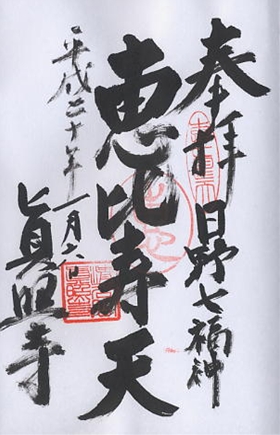 奉拝 日野七福神
恵比寿天
平成二十年一月六日
真照寺